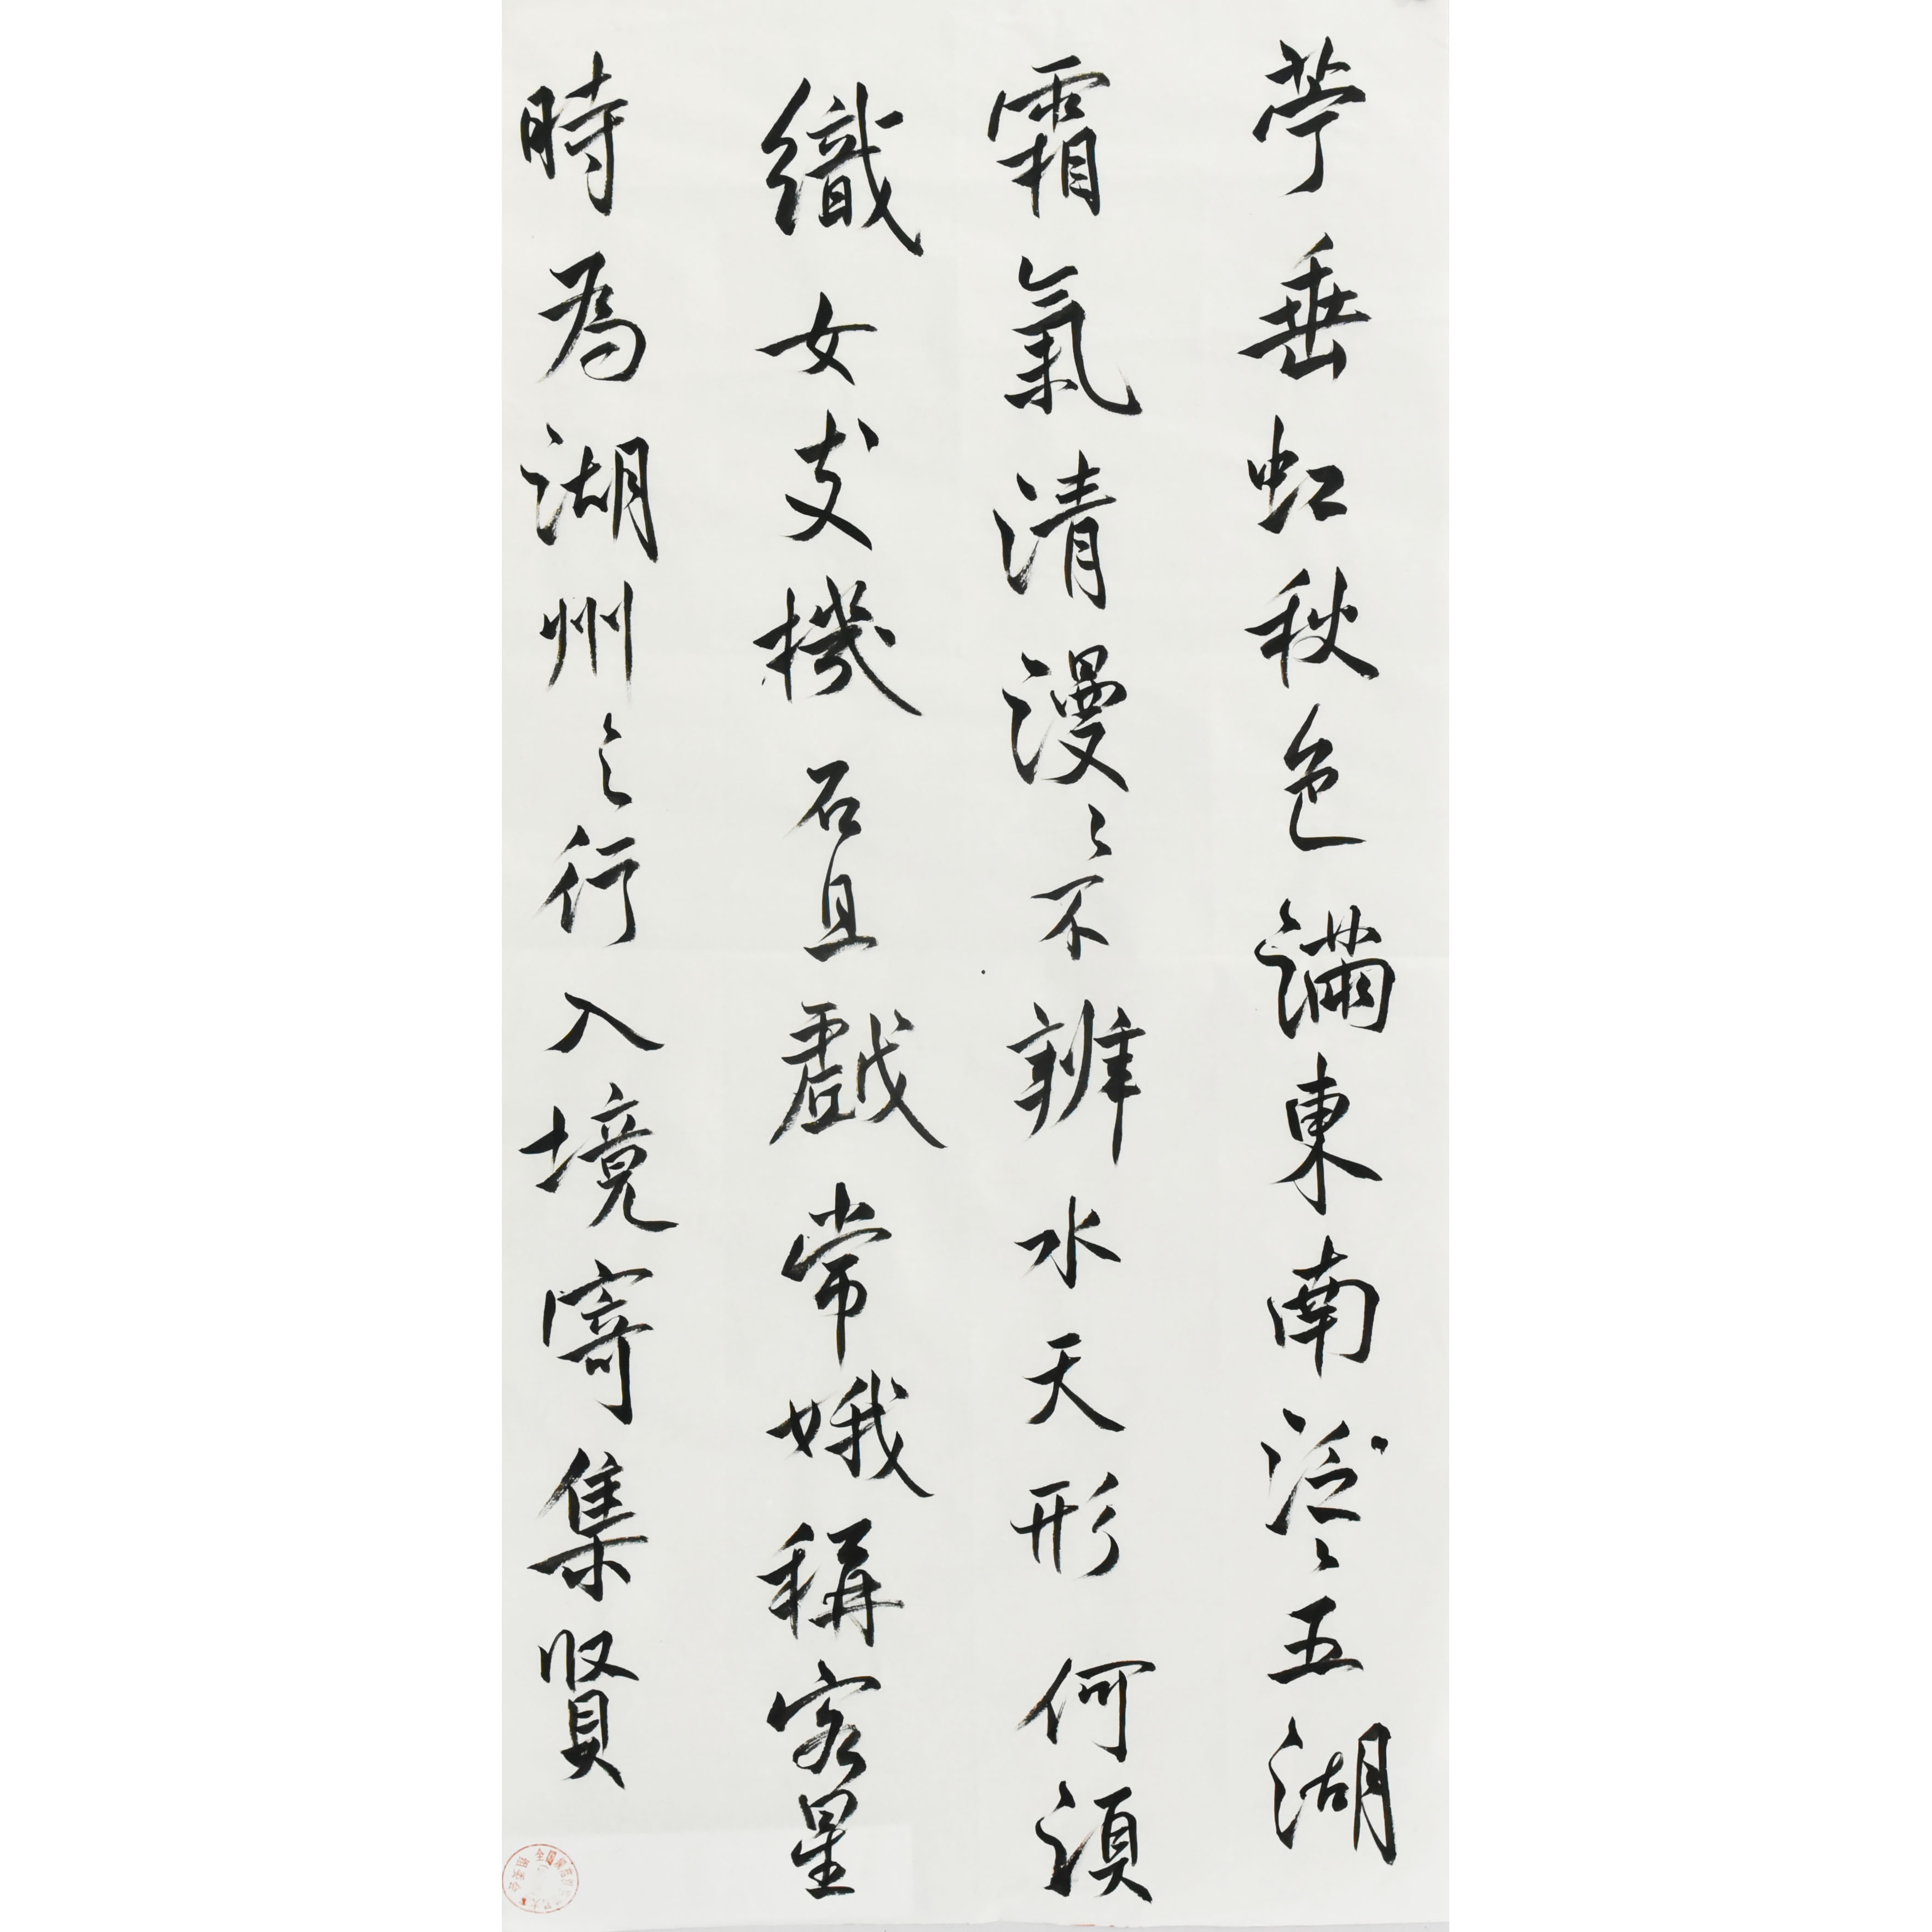 苧垂虹秋色满東南泛〻五湖
霜氣清漫〻不辨水天形何須
織女支機石且戲常娥稱客星
時為湖州之行入境寄集賢